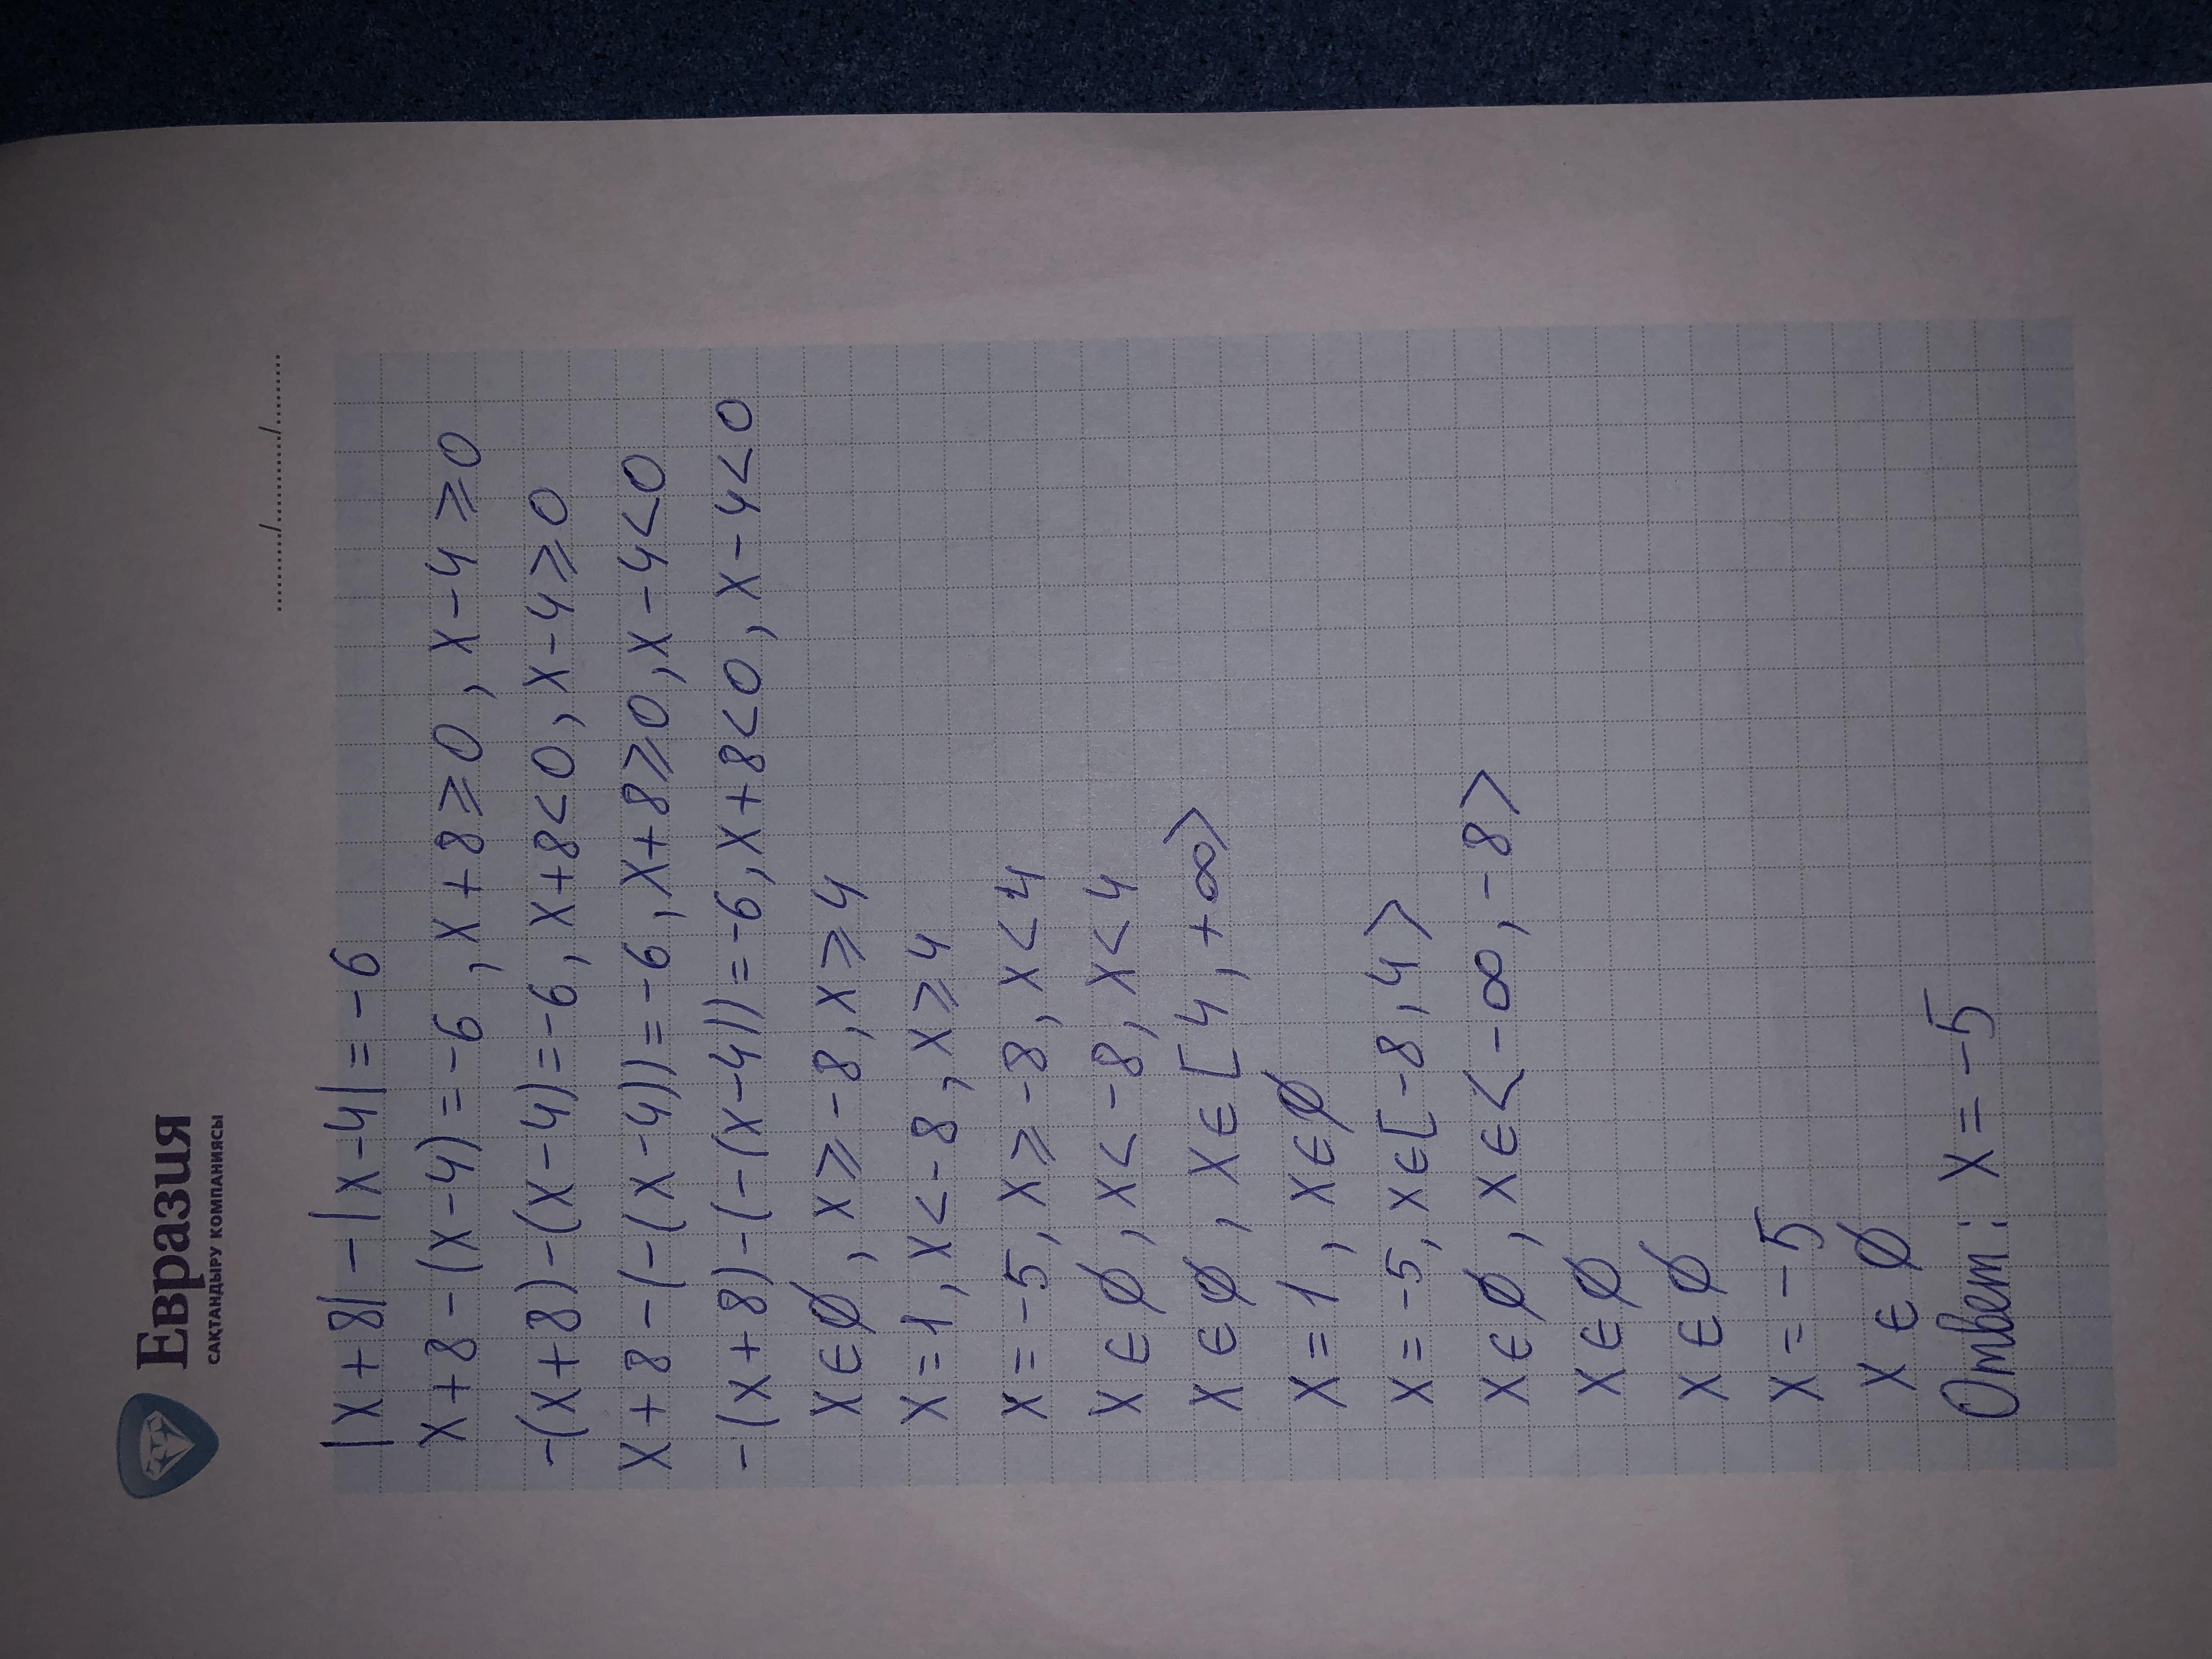 Евразия
САҚТАНДЫРУ КОМПАНИЯСЫ
......../......../........
|x+8|-|x-4|=-6
x+8-(x-4)=-6, x+8≥0, x-4≥0
-(x+8)-(x-4)=-6, x+8<0, x-4≥0
x+8-(-(x-4))=-6, x+8≥0, x-4<0
-(x+8)-(-(x-4))=-6, x+8<0, x-4<0
x∈∅, x≥-8, x≥4
x=1, x<-8, x≥4
x=-5, x≥-8, x<4
x∈∅, x<-8, x<4
x∈∅, x∈[4,+∞>
x=1, x∈∅
x=-5, x∈[-8,4>
x∈∅, x∈<-∞,-8>
x∈∅
x∈∅
x=-5
x∈∅
Ответ: x=-5